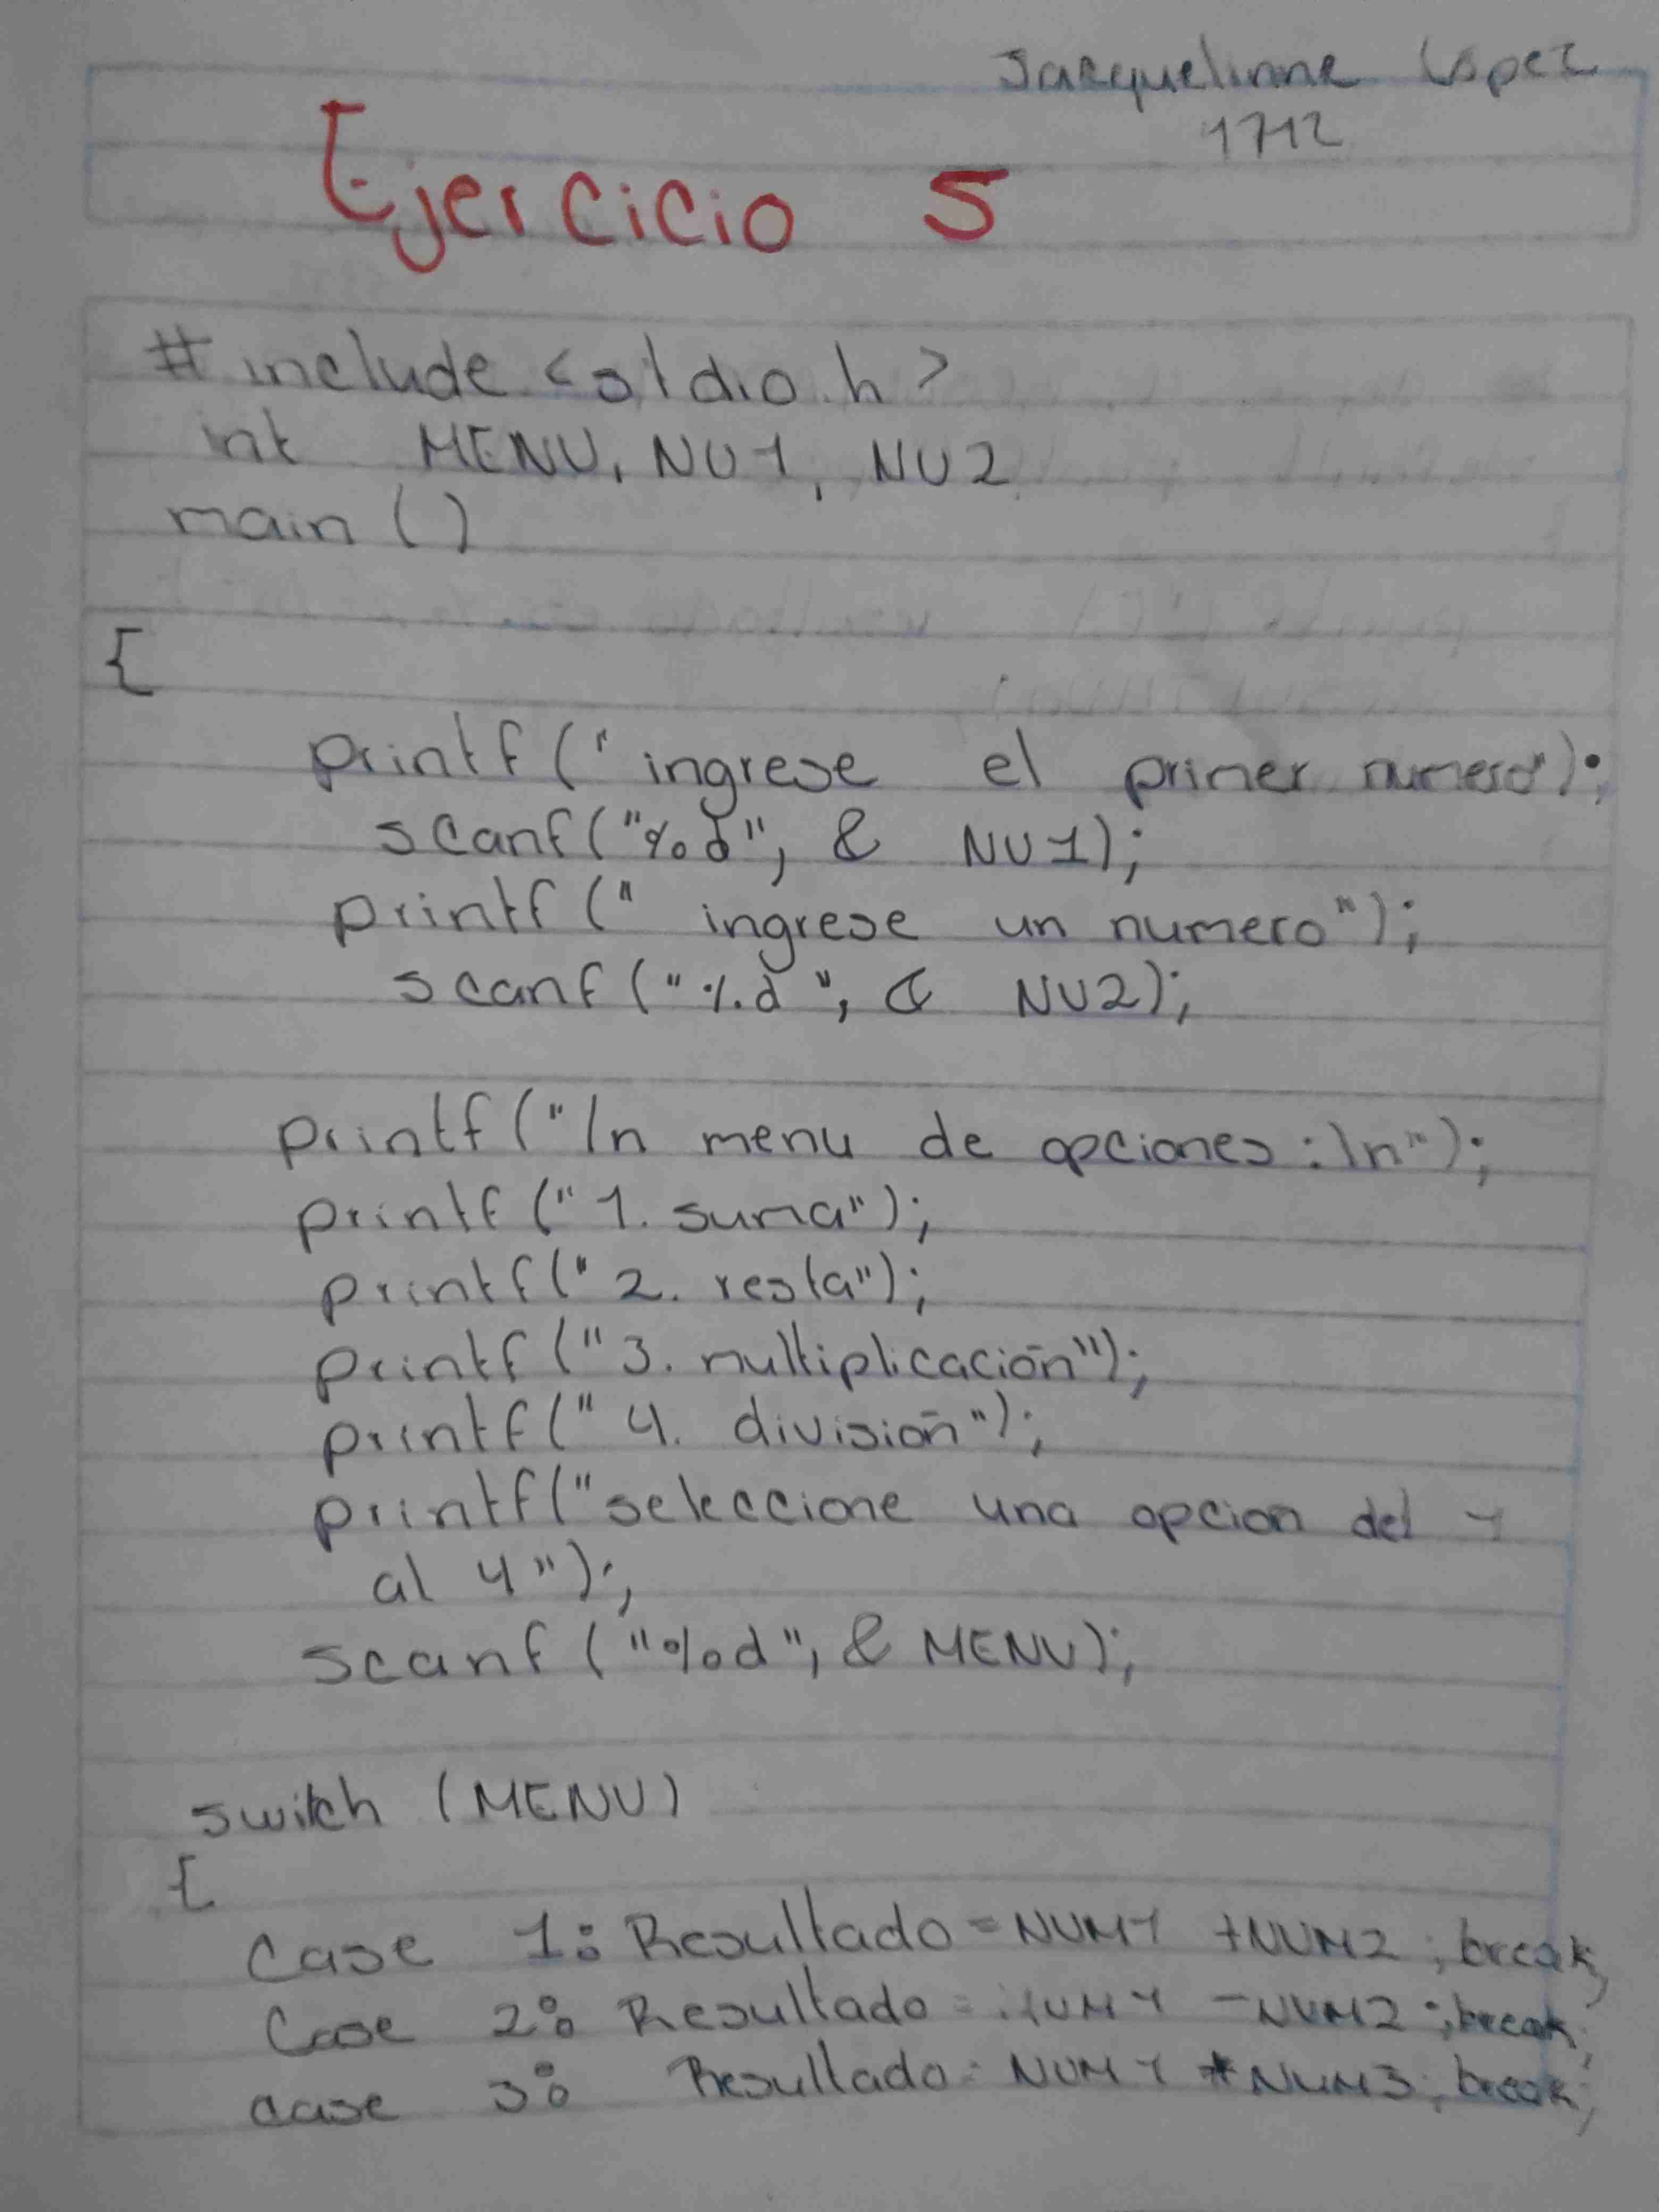 Jacquelinne López
1712
Ejercicio 5
# include <stdio.h>
int MENU, NU1, NU2
main ()
{
printf (" ingrese el primer numero");
scanf("%d", & NU1);
printf (" ingrese un numero");
scanf ("%d ", & NU2);
printf ("/n menu de opciones :\n");
printf (" 1. suma");
printf (" 2. resta");
printf ("3. multiplicación");
printf (" 4. división");
printf("seleccione una opcion del 1
al 4");
scanf ("%d", & MENU);
switch (MENU)
{
Case 1: Resultado = NUM1 +NUM2 ; break;
Case 2: Resultado = NUM1 -NUM2 ; break;
case 3: Resultado = NUM1 *NUM3; break;